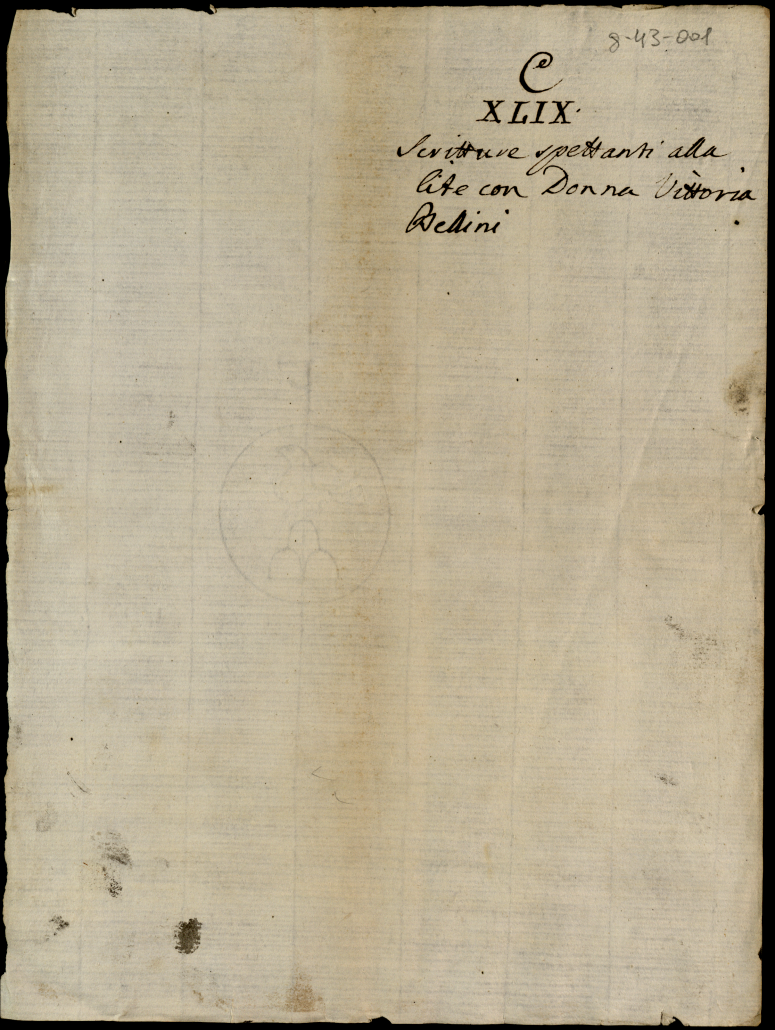 8-43-001
C
XLIX.
Scritture spettanti alla
lite con Donna Vittoria
Bellini